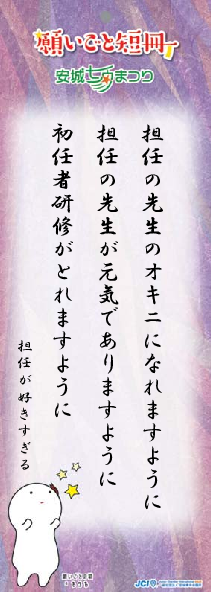 願いごと短冊
安城七夕まつり
担任の先生のオキニになれますように
担任の先生が元気でありますように
初任者研修がとれますように
担任が好きすぎる
JCI